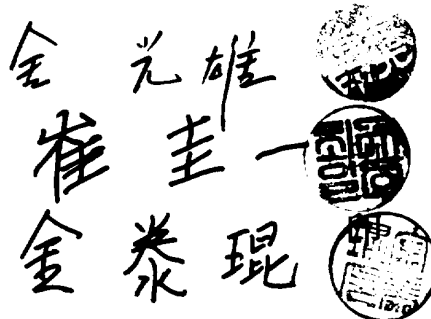 金 光 雄
崔 圭 一
金 泰 琨